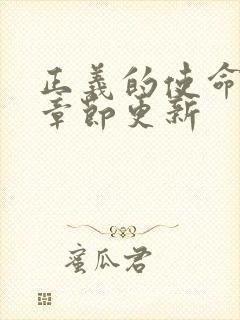 正義的使命
章節更新
蜜瓜君